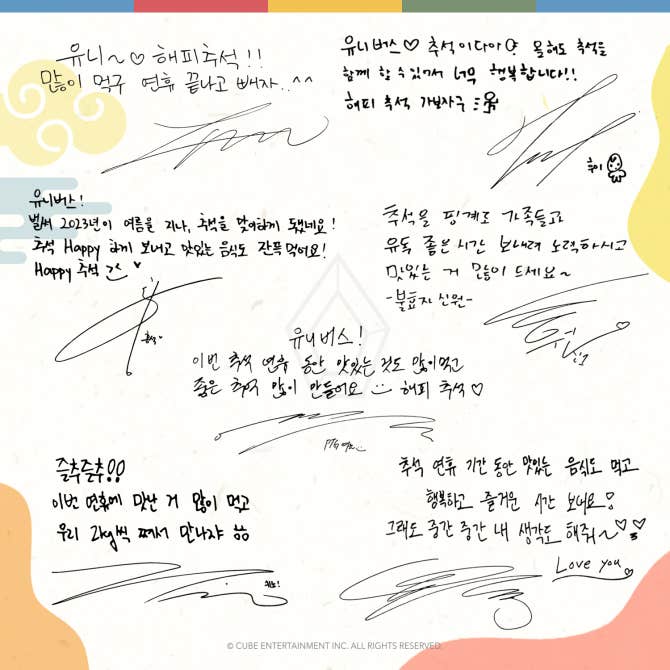 유니~♡ 해피추석!!
많이 먹구 연휴 끝나고 빼자..^^
유니버스♡ 추석이다아! 올해도 추석을
함께 할 수 있어서 너무 행복합니다!!
해피 추석 가보자구
후이
유니버스!
벌써 2023년이 여름을 지나, 추석을 맞이하게 됐네요!
추석 Happy 하게 보내고 맛있는 음식도 잔뜩 먹어요!
Happy 추석
홍석
추석을 핑계로 가족들과
유독 좋은 시간 보내려 노력하시고
맛있는 거 많이 드세요~
-불효자 신원-
유니버스!
이번 추석 연휴 동안 맛있는 것도 많이먹고
좋은 추억 많이 만들어요 해피 추석♡
PTG
즐추즐추!!
이번 연휴에 맛난 거 많이 먹고
우리 2kg씩 쪄서 만나쟈
키노!
추석 연휴 기간 동안 맛있는 음식도 먹고
행복하고 즐거운 시간 보내요
그래도 중간 중간 내 생각도 해줘~♡♡
Love you
© CUBE ENTERTAINMENT INC. ALL RIGHTS RESERVED.